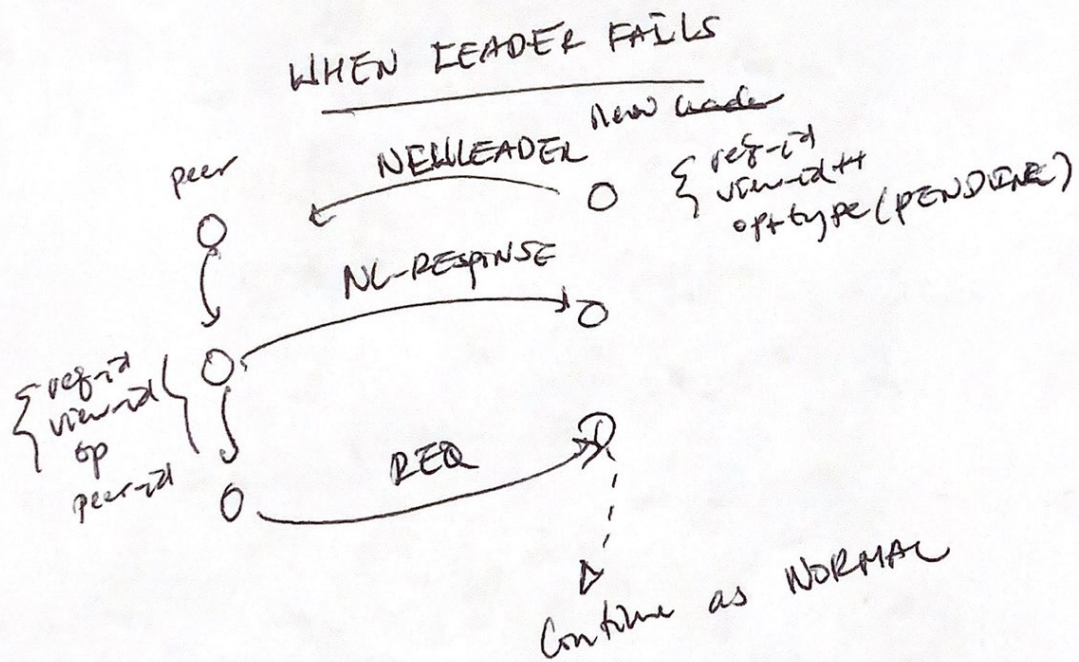 WHEN LEADER FAILS
new leader
peer
NEWLEADER
{ req-id
view-id++
op+type (PENDING)
NL-RESPONSE
{ req-id
view-id
op
peer-id }
REQ
Continue as NORMAL